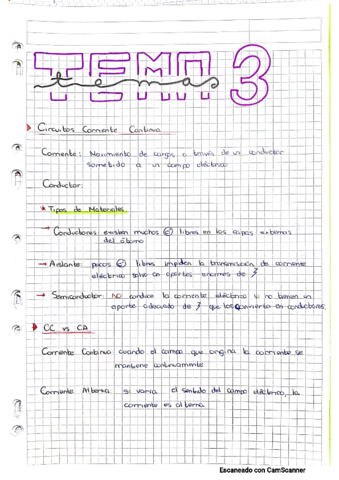 TEMA 3
temas
Circuitos Corriente Continua
Corriente: Movimiento de cargas a través de un conductor
sometido a un campo eléctrico
Conductor:
* Tipos de Materiales
→ Conductores existen muchos e⁻ libres en las capas externas
del átomo
→ Aislante: pocos e⁻ libres impiden la transmisión de corriente
eléctrica salvo en aportes enormes de
→ Semiconductor: NO conduce la corriente eléctrica si no tienen un
aporte adecuado de que los convierta en conductores.
CC vs CA
Corriente Continua cuando el campo que origina la corriente se
mantiene continuamente
Corriente Alterna si varía el sentido del campo eléctrico, la
corriente es alterna
Escaneado con CamScanner